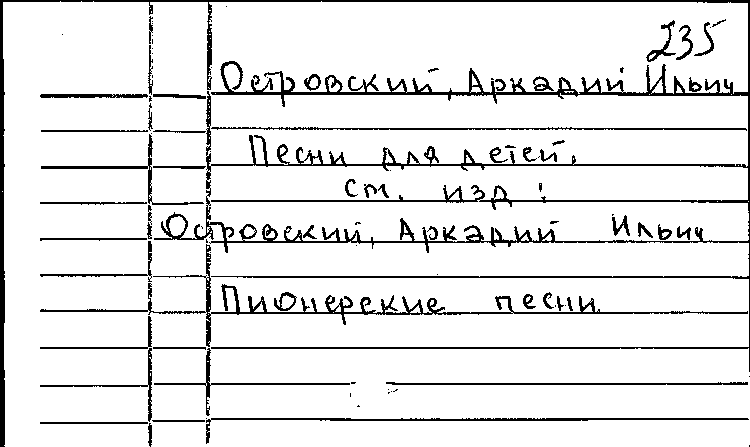 235
Островский, Аркадий Ильич
Песни для детей.
см. изд:
Островский, Аркадий Ильич
Пионерские песни.